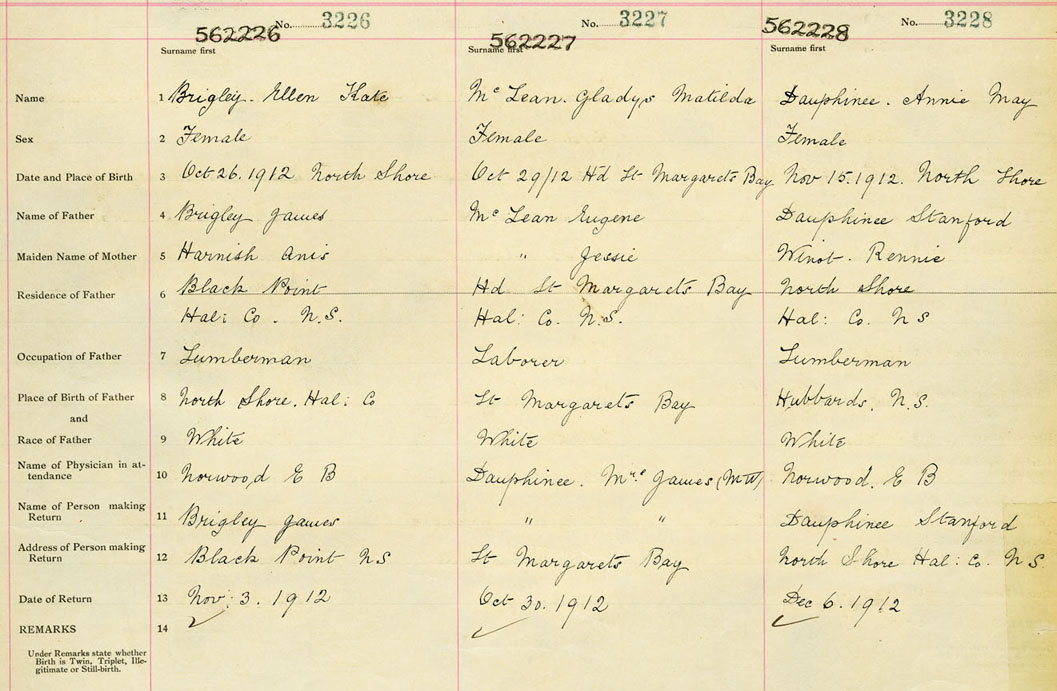 No. 3226 No. 3227 No. 3228
562226 562227 562228
Surname first Surname first Surname first
Name 1 Brigley. Ellen Kate Mc Lean. Gladys Matilda Dauphinee. Annie May
Sex 2 Female Female Female
Date and Place of Birth 3 Oct 26. 1912 North Shore Oct 29/12 Hd St Margarets Bay Nov 15. 1912. North Shore
Name of Father 4 Brigley James Mc Lean Eugene Dauphinee Stanford
Maiden Name of Mother 5 Harnish Anis " Jessie Winot. Rennie
Residence of Father 6 Black Point Hd St Margarets Bay North Shore
Hal: Co. N.S. Hal: Co. N.S. Hal: Co. N S
Occupation of Father 7 Lumberman Laborer Lumberman
Place of Birth of Father 8 North Shore. Hal: Co St Margarets Bay Hubbards, N.S.
and
Race of Father 9 White White White
Name of Physician in at-
tendance 10 Norwood E B Dauphinee. Mrs James (MW) Norwood. E B
Name of Person making
Return 11 Brigley James " " Dauphinee Stanford
Address of Person making
Return 12 Black Point NS St Margarets Bay North Shore Hal: Co. N S.
Date of Return 13 Nov. 3. 1912 Oct 30. 1912 Dec 6. 1912
REMARKS 14
Under Remarks state whether
Birth is Twin, Triplet, Ille-
gitimate or Still-birth.